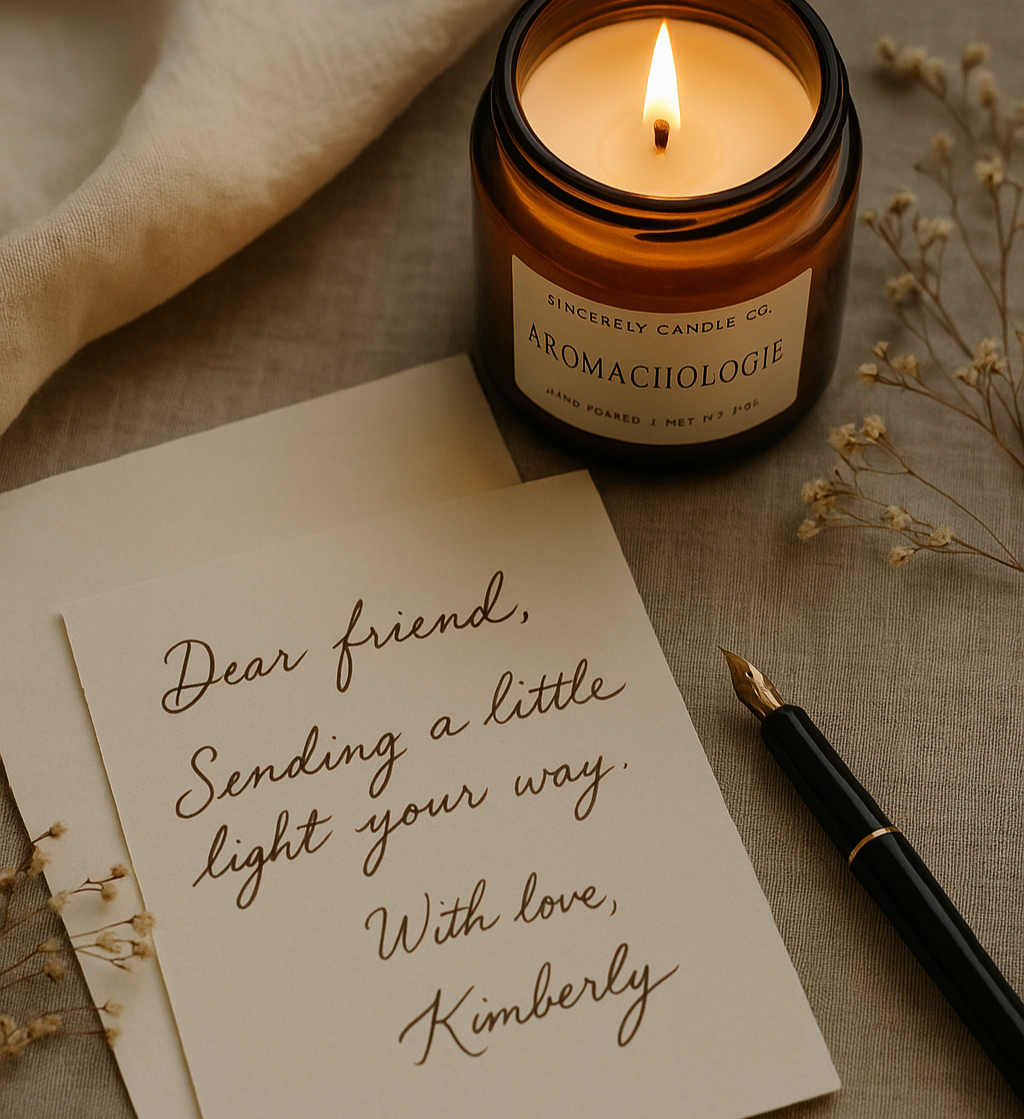 SINCERELY CANDLE CG.
AROMACIIOLOGIE
HAND POARED 1 MET
Dear friend,
Sending a little
light your way.
With love,
Kimberly